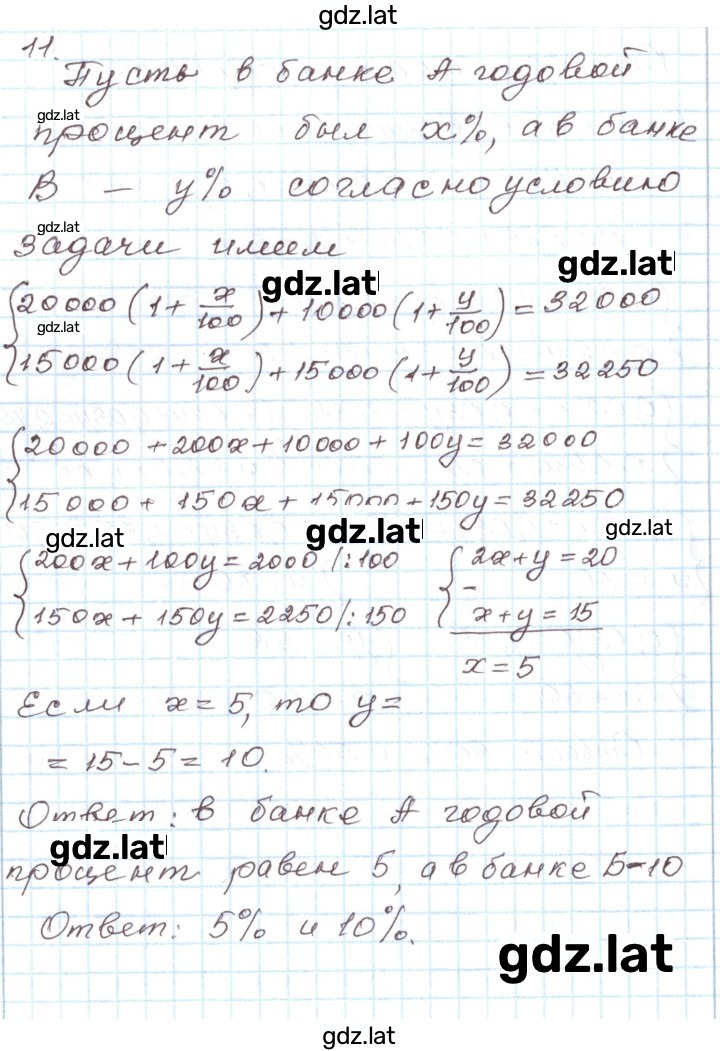 gdz.lat
11.
Пусть в банке А годовой
gdz.lat
процент был x%, а в банке
В – y% согласно условию
gdz.lat
задачи имеем
gdz.lat
gdz.lat
{20000(1+x/100)+10000(1+y/100)=32000
gdz.lat
{15000(1+x/100)+15000(1+y/100)=32250
{20000+200x+10000+100y=32000
{15000+150x+15000+150y=32250
gdz.lat
gdz.lat
gdz.lat
{200x+100y=2000/:100 {2x+y=20
{150x+150y=2250/:150 – x+y=15
x=5
Если x=5, то y=
=15–5=10.
Ответ: в банке А годовой
gdz.lat
процент равен 5, а в банке Б–10
Ответ: 5% и 10%.
gdz.lat
gdz.lat